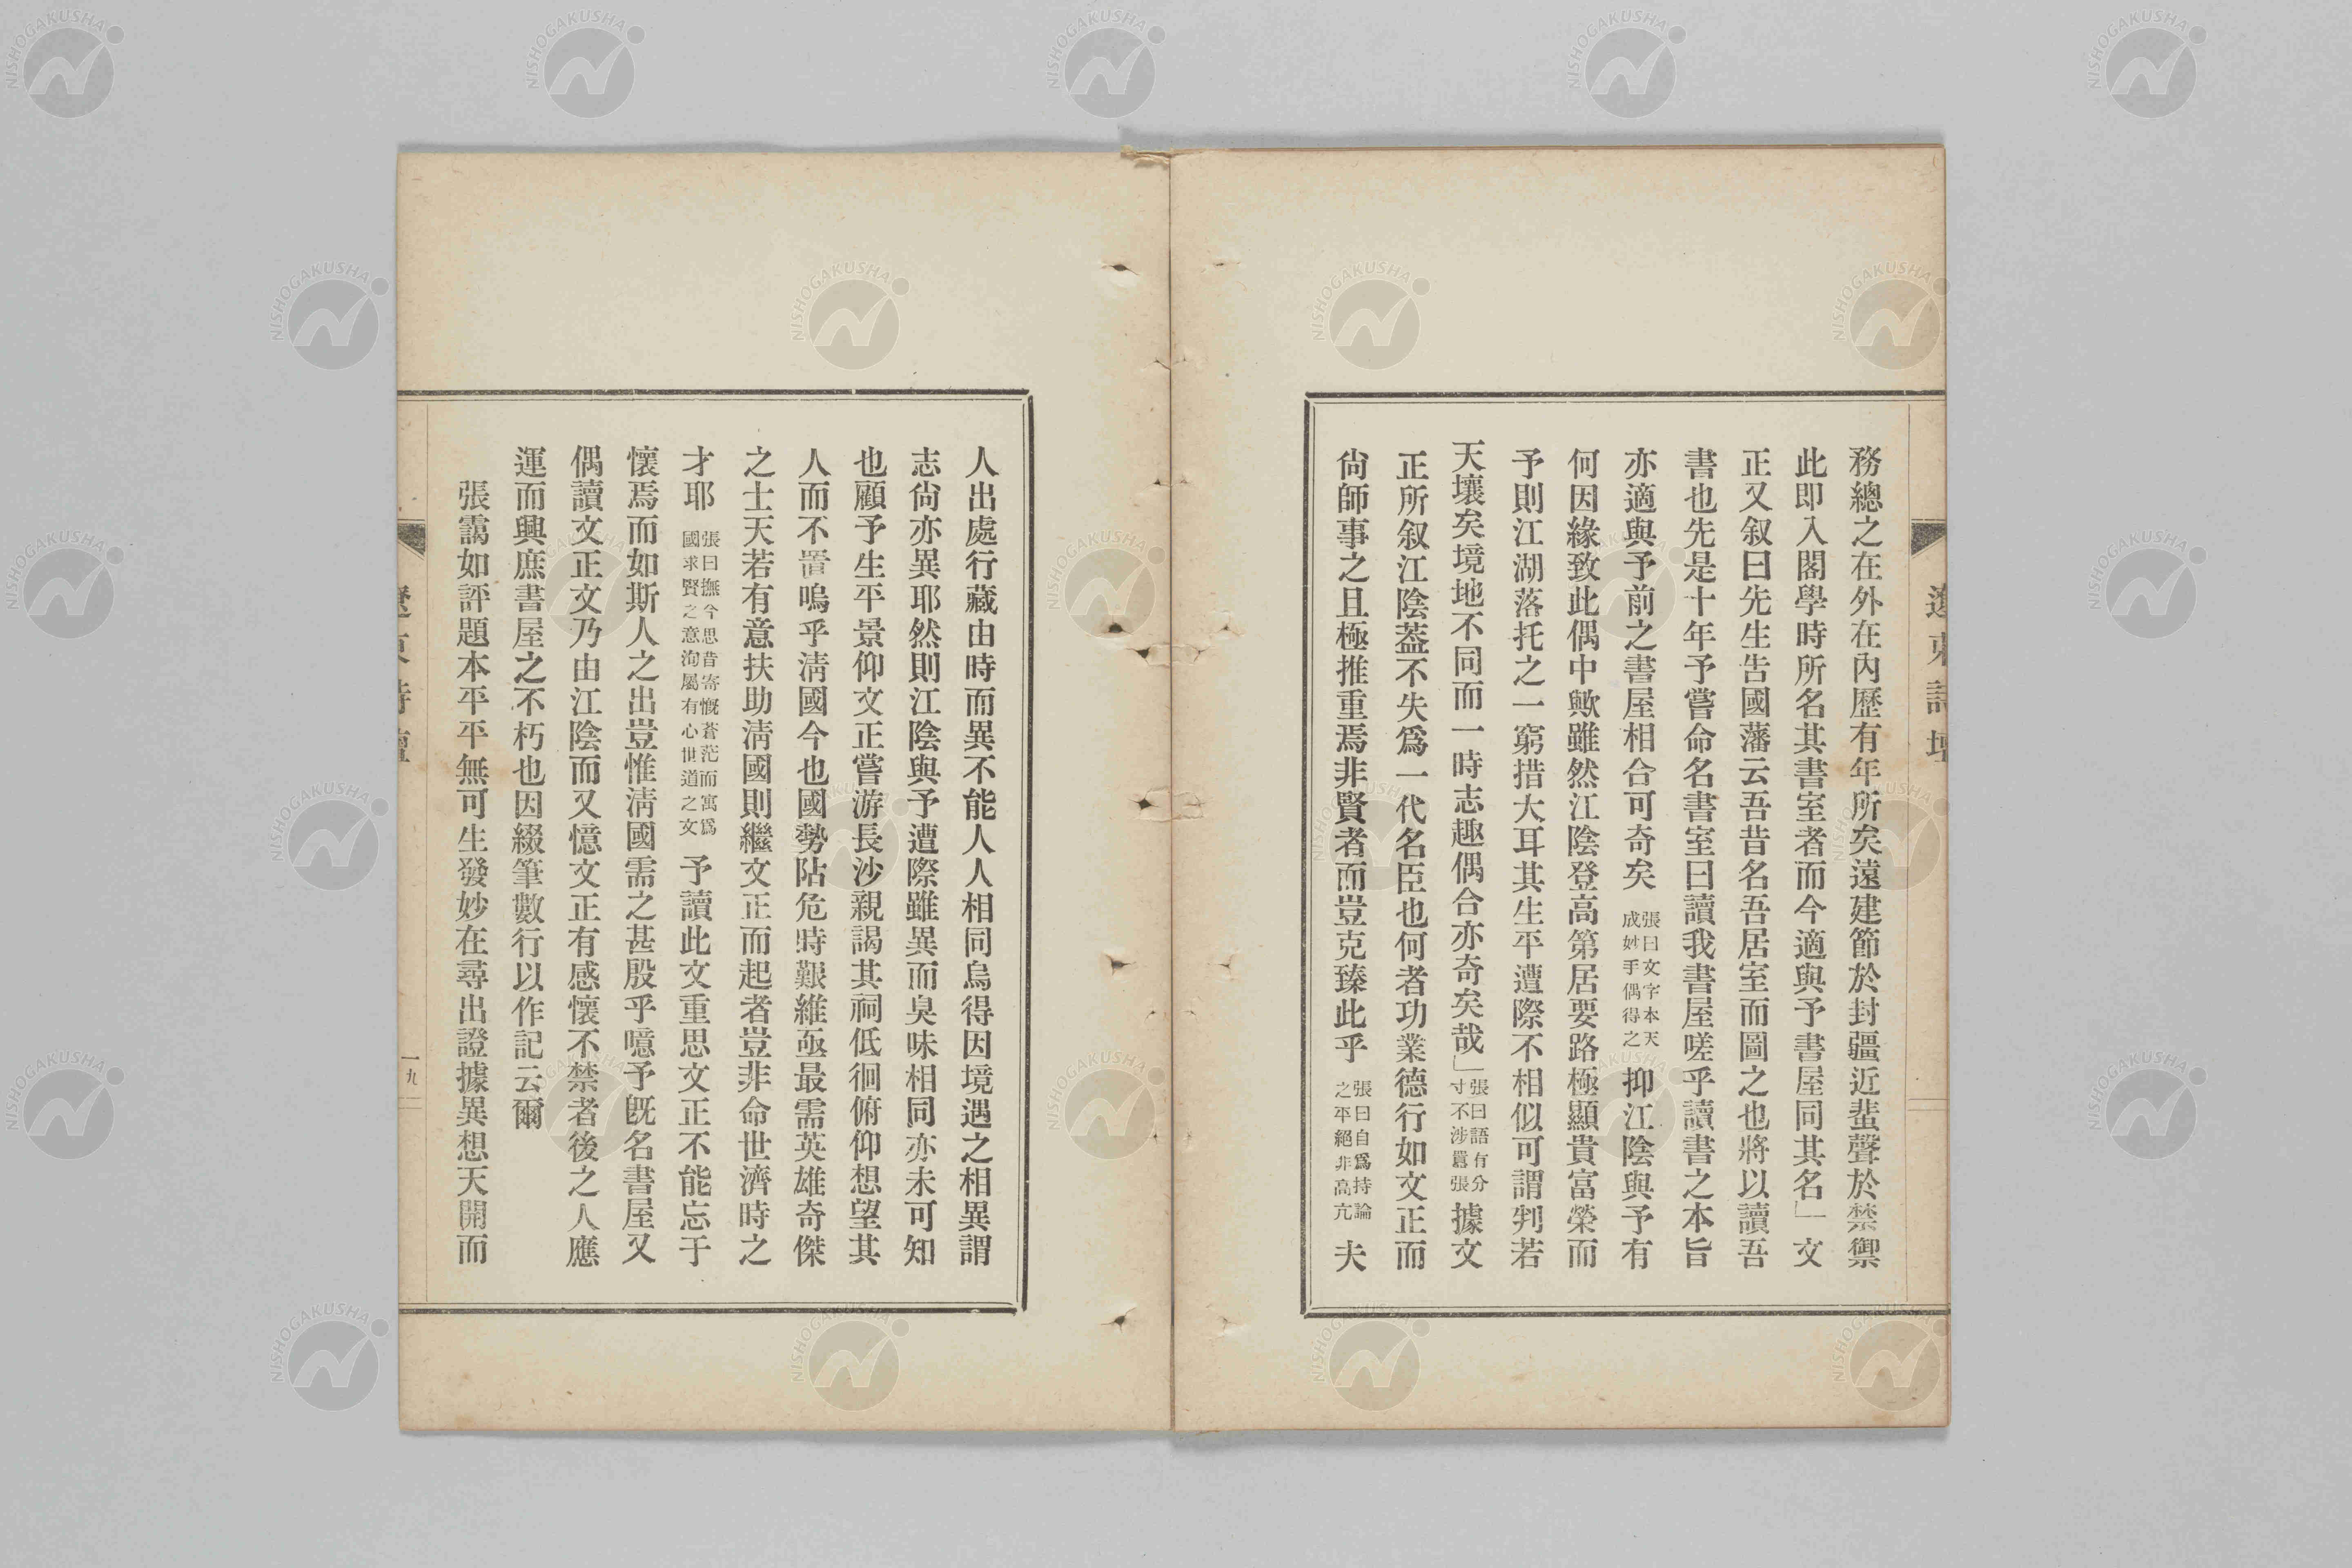 務總之在外在內歷有年所矣遠建節於封疆近蜚聲於禁禦
此即入閣學時所名其書室者而今適與予書屋同其名」文
正又叙曰先生告國藩云吾昔名吾居室而圖之也將以讀吾
書也先是十年予嘗命名書室曰讀我書屋嗟乎讀書之本旨
亦適與予前之書屋相合可奇矣 張曰文字本天成妙手偶得之 抑江陰與予有
何因緣致此偶中歟雖然江陰登高第居要路極顯貴富榮而
予則江湖落托之一窮措大耳其生平遭際不相似可謂判若
天壤矣境地不同而一時志趣偶合亦奇矣哉」 張曰語有分寸不涉囂張 據文
正所叙江陰葢不失爲一代名臣也何者功業德行如文正而
尙師事之且極推重焉非賢者而豈克臻此乎 張曰自爲持論之平絕非高亢 夫
人出處行藏由時而異不能人人相同烏得因境遇之相異謂
志尙亦異耶然則江陰與予遭際雖異而臭味相同亦未可知
也顧予生平景仰文正嘗游長沙親謁其祠低徊俯仰想望其
人而不置嗚乎淸國今也國勢阽危時艱維亟最需英雄奇傑
之士天若有意扶助淸國則繼文正而起者豈非命世濟時之
才耶 張曰撫今思昔寄慨蒼茫而寓爲國求賢之意洵屬有心世道之文 予讀此文重思文正不能忘于
懷焉而如斯人之出豈惟淸國需之甚殷乎噫予旣名書屋又
偶讀文正文乃由江陰而又憶文正有感懷不禁者後之人應
運而興庶書屋之不朽也因綴筆數行以作記云爾
張靄如評題本平平無可生發妙在尋出證據異想天開而
遼東詩壇
一九
NISHOGAKUSHA